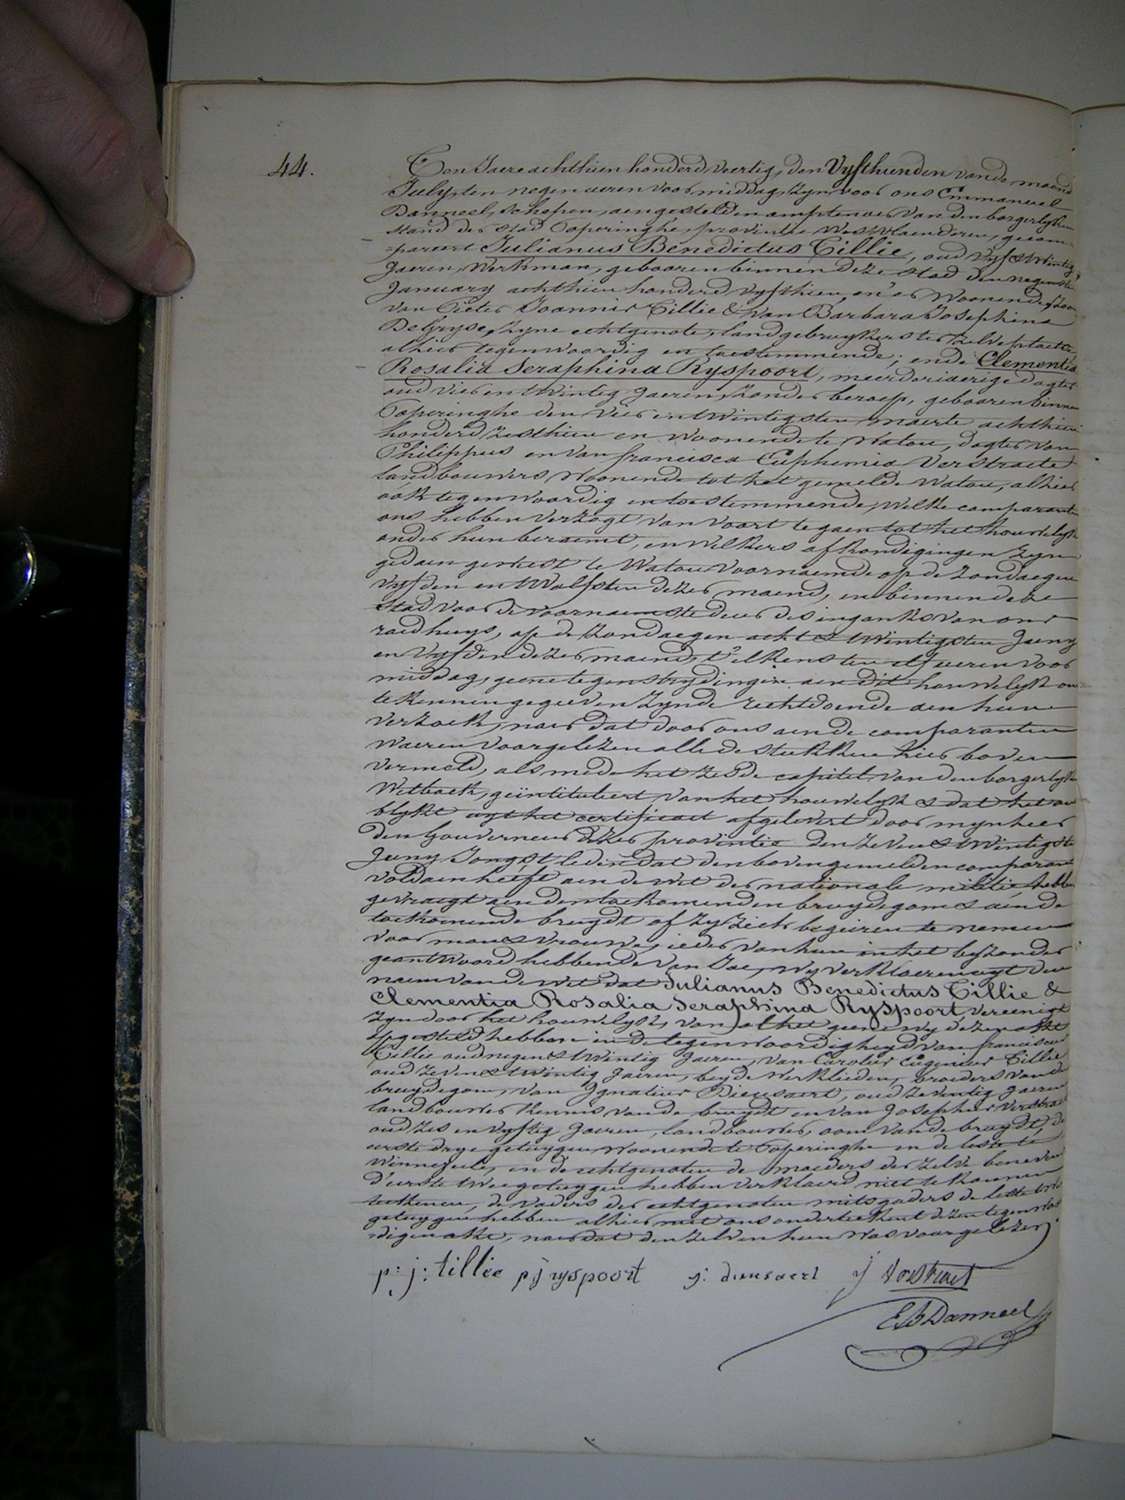 44.
Ten Jaere achthien honderd veertig, den Vyfthienden van de maend
July, ten negen ueren voor middag, zyn voor ons Emmanuel
Danneel, schepen, aengestelden amptenaer van den borgerlyken
stand der stad Poperinghe, provintie Westvlaenderen, gecom-
-pareert Julianus Benedictus Tillie, oud vyf & twintig
Jaeren, werkman, gebooren binnen deze stad den negensten
January achthien honderd vyfthien, en er woonende, zoon
van Pieter Joannis Tillie & van Barbara Josephina
Debryse, zyne echtgenote, landgebruykers ter zelve plaetse
alhier tegenwoordig en toestemmende; ende Clementia
Rosalia Seraphina Ryspoort, meerderjaerige dogter
oud vier en twintig Jaeren, zonder beroep, gebooren binnen
Poperinghe den vier en twintigsten maerte achthien
honderd zesthien en woonende te Watou, dogter van
Philippus en van francisca Euphemia Verstraete
landbouwers woonende tot het gemelde Watou, alhier
ook tegenwoordig en toestemmende, welke comparanten
ons hebben verzogt van voort te gaen tot het houwelyk
onder hun beraemt, en welkers afkondigingen zyn
gedaen geweest te Watou voornaemd op de zondaegen
vyfden en twalfsten dezer maend, en binnen deze
stad voor de voornaemste deur des ingangs van ons
raedhuys, op de zondaegen acht & twintigsten Juny
en vyfden dezer maend, t'elkens ten elf ueren voor
middag, geene tegenstrydingen aen dit houwelyk ons
te kennen gegeven zynde rechtdoende aen hun
verzoek, naer dat door ons aen de comparanten
waeren voorgelezen alle de stukken hier boven
vermeld, als mede het zesde capitel van den borgerlyken
Wetboek, geïntituleert van het houwelyk & dat het ons
blykt uyt het certificaet afgelevert door mynheer
den Gouverneur dezer provintie den zeven & twintigsten
Juny Jongst leden dat den bovengemelden comparant
voldaen heeft aen de wet der nationale militie hebben
gevraegt aen den toekomenden bruydegom & aen de
toekomende bruydt of zy zich begeeren te nemen
voor man & vrouwe, ieder van hun in het byzonder
geantwoord hebbende van Jae, wy verklaeren uyt den
naem van de wet dat Julianus Benedictus Tillie &
Clementia Rosalia Seraphina Ryspoort vereenigt
zyn door het houwelyk, van al het geene wy dezen akt
opgesteld hebben in de tegenwoordigheyd van franciscus
Tillie oud negen & twintig Jaeren, van Carolus Eugenius Tillie
oud zeven & twintig Jaeren, beyde werklieden, broeders van de
bruydegom, van Ignatius Dieusaert, oud zeventig Jaeren
landbouwer kennis van de bruydt en van Josephus Verstraete
oud zes en vyftig Jaeren, landbouwer, oom van de bruydt, de
eerste drye getuygen woonende te Poperinghe en de leste te
Winnezeele, en de echtgenoten de moeders der zelve benevens
d'eerste twee getuygen hebben verklaerd niet te konnen
teekenen, de vaders der echtgenoten mitsgaders de leste twee
getuygen hebben alhier met ons onderteekent dezen tegenwoor-
digen akt, naer dat den zelven hun was voorgelezen
p: j: tillie p j ryspoort j: dieusaert j Verstraet
E B Danneel